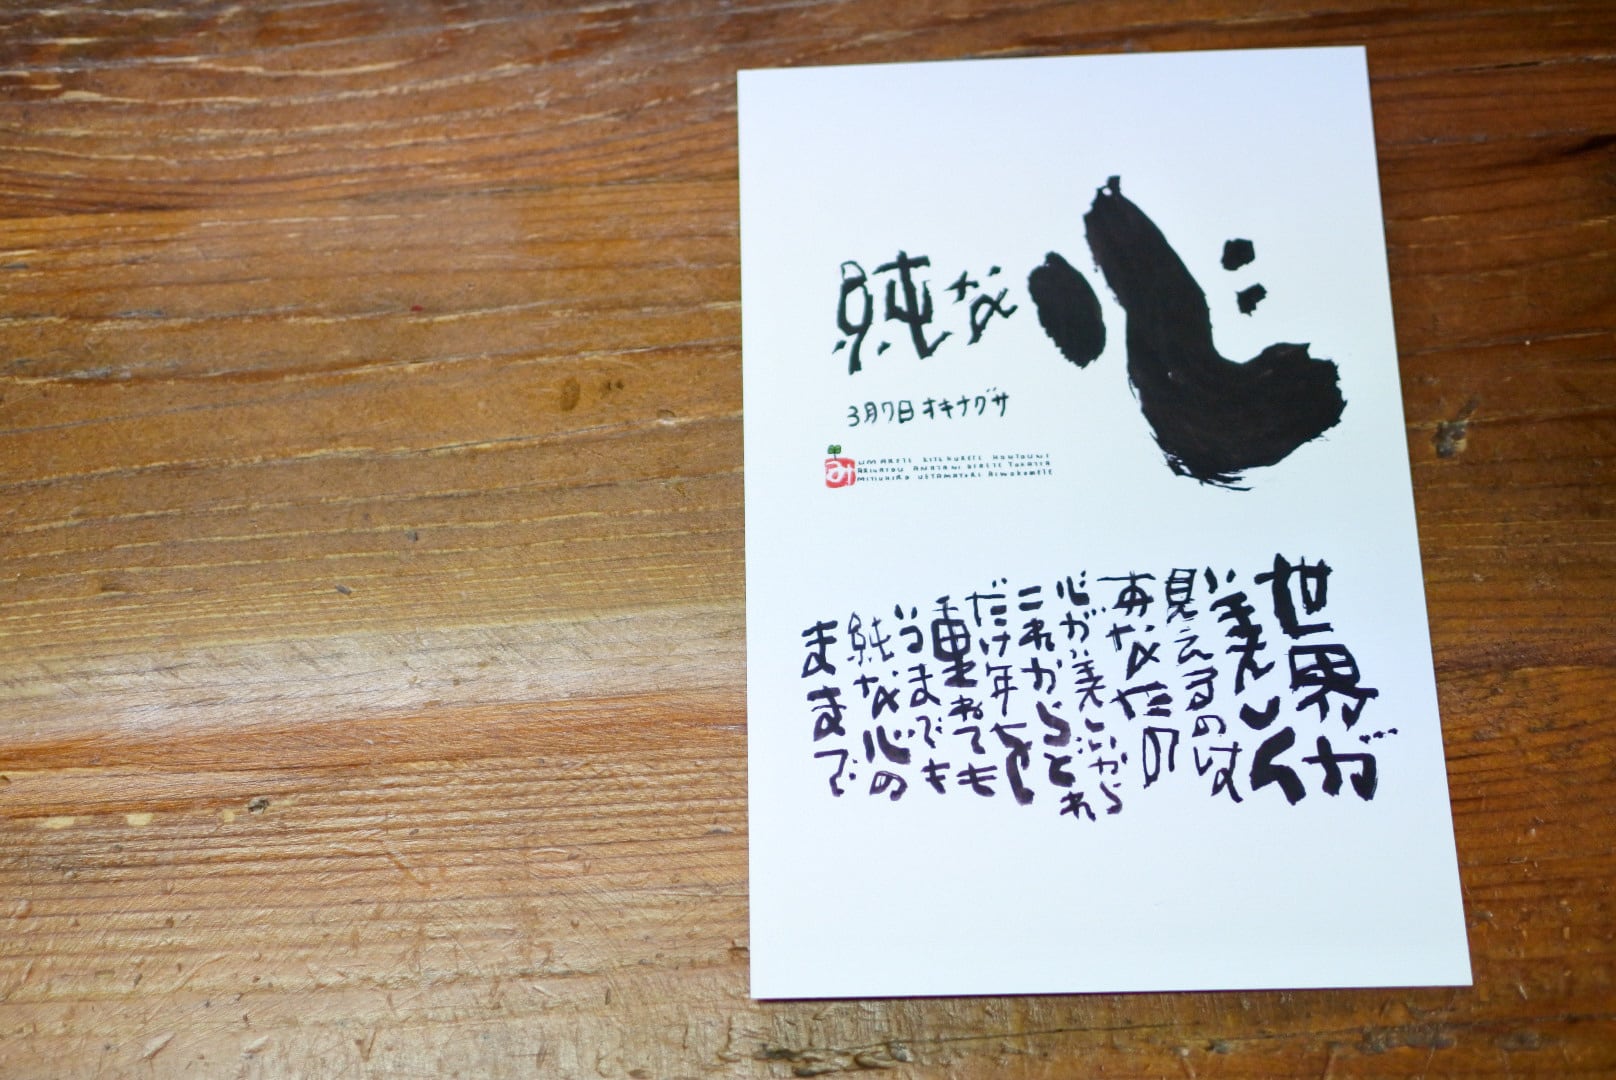 純な心
3月7日オキナグサ
み
UMARETE KITEKURETE HONTOUNI
ARIGATOU ANATANI DEAETE
世界が
美しく
見えるのは
あなたの
心が美しいから
これからどれ
だけ年を
重ねても
いつまでも
純な心の
ままで